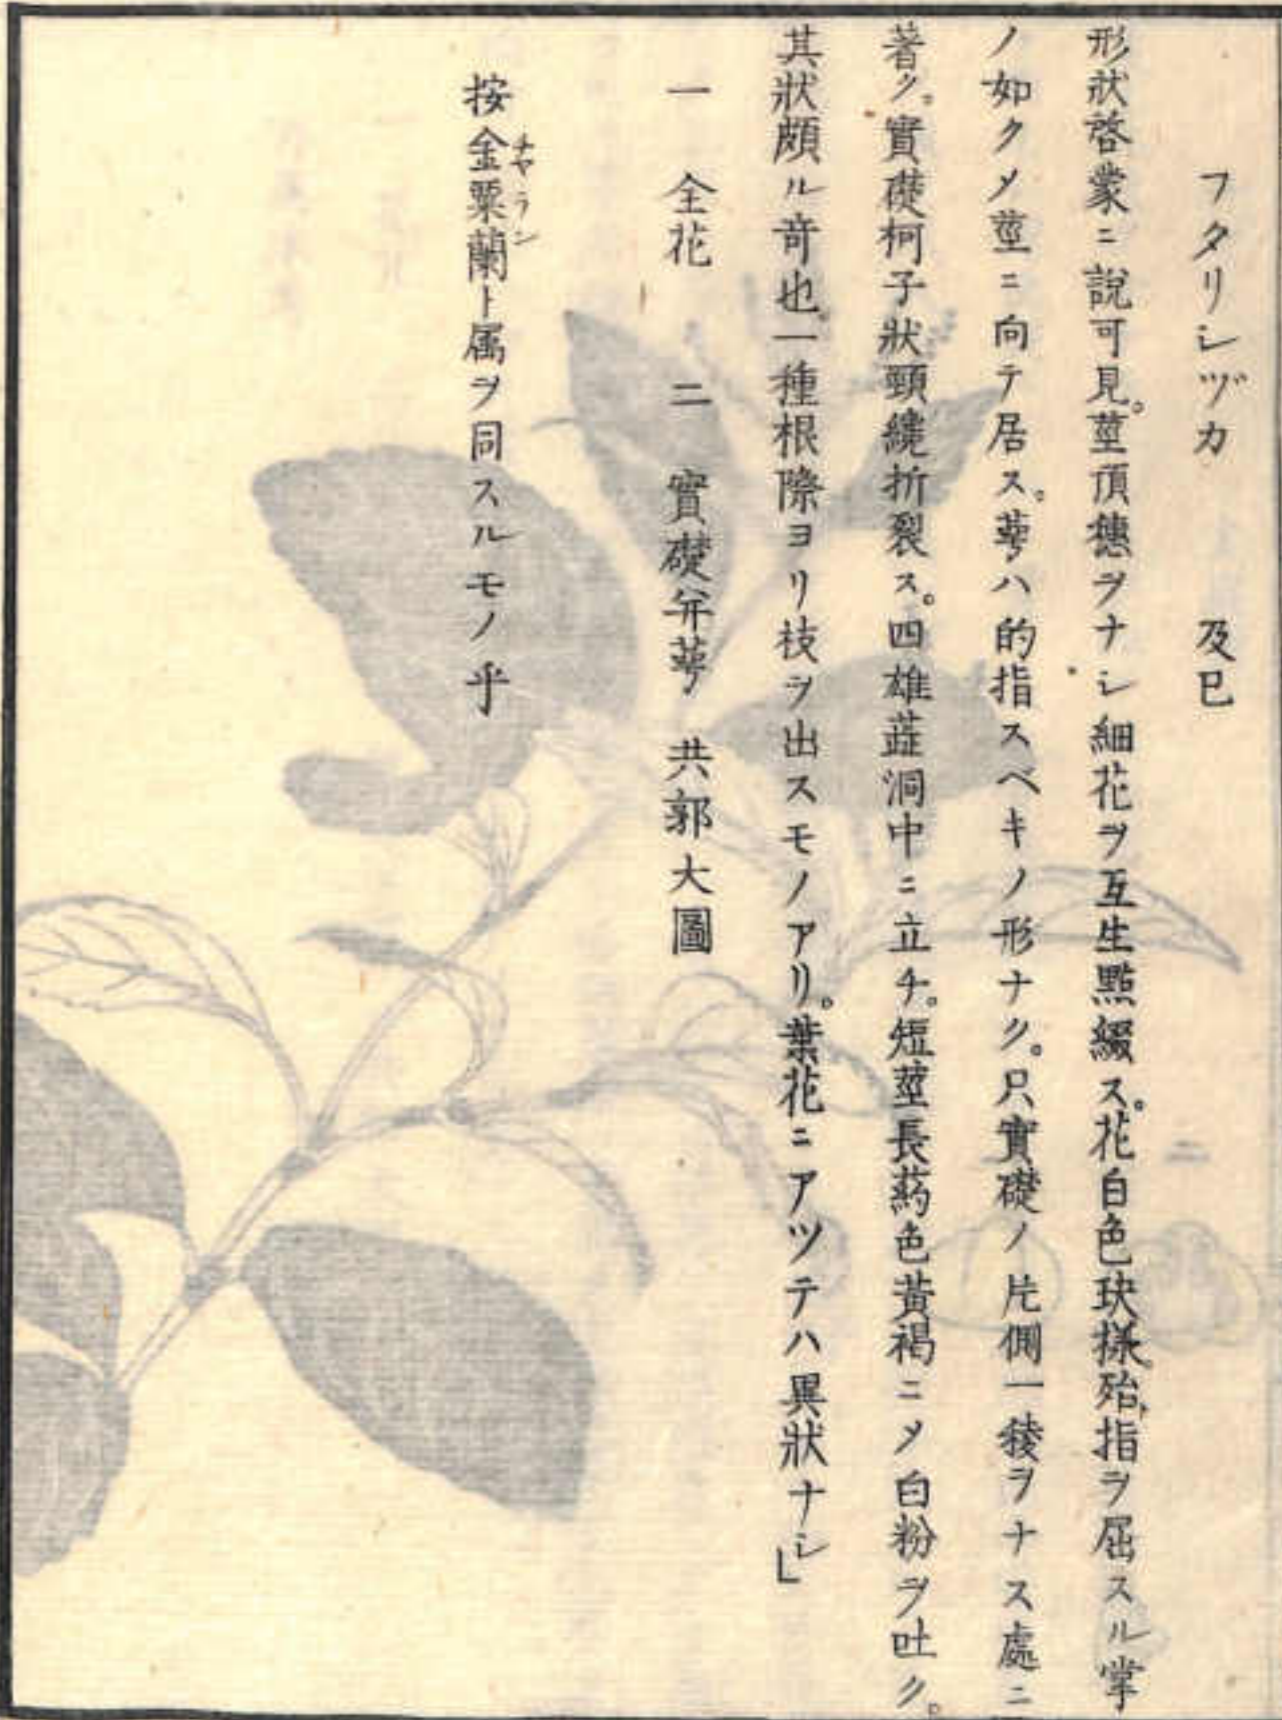 フタリシヅカ　及巳
形狀啓蒙ニ說可見。莖頂穗ヲナシ細花ヲ互生點綴ス。花白色玦樣。殆指ヲ屈スル掌
ノ如クメ莖ニ向テ居ス。萼ハ的指スベキノ形ナク。只實礎ノ片側一稜ヲナス處ニ
著ク。實礎柯子狀頸繞折裂ス。四雄蕋洞中ニ立チ。短莖長葯色黃褐ニメ白粉ヲ吐ク。
其狀頗ル奇也。一種根際ヨリ枝ヲ出スモノアリ。葉花ニアツテハ異狀ナシ」
一　全花　二　實礎并萼　共郭大圖
按金粟蘭ト属ヲ同スルモノ乎
チヤラン
二